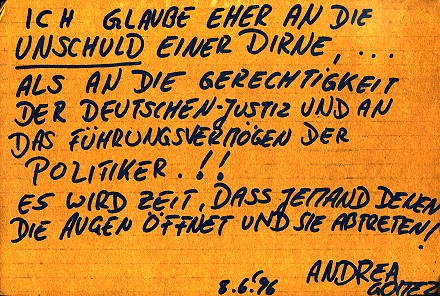 ICH GLAUBE EHER AN DIE
UNSCHULD EINER DIRNE, ...
ALS AN DIE GERECHTIGKEIT
DER DEUTSCHEN-JUSTIZ UND AN
DAS FÜHRUNGSVERMÖGEN DER
POLITIKER.!!
ES WIRD ZEIT, DASS JEMAND DENEN
DIE AUGEN ÖFFNET UND SIE ABTRETEN!
8.6.'96 ANDREA